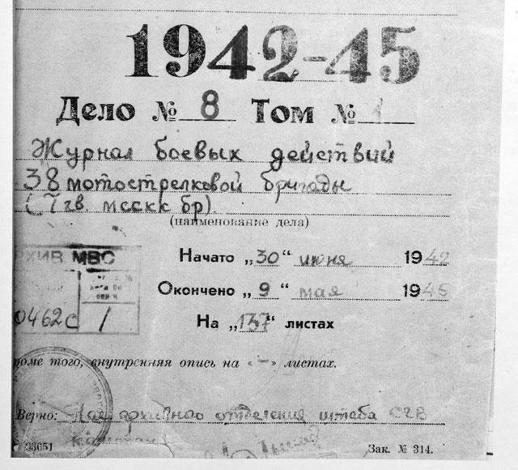 1942-45
Дело № 8 Том № 1
Журнал боевых действий
38 мотострелковой бригады
(7 гв. мсскк бр).
(наименование дела)
Начато „30“ июня 1942
Окончено „9“ мая 1945
На „137“ листах
РХИВ МВС
0462с 1
роме того, внутренняя опись на „—“ листах.
Верно: Нач архивного отделения штаба СГВ
Зак. № 314.